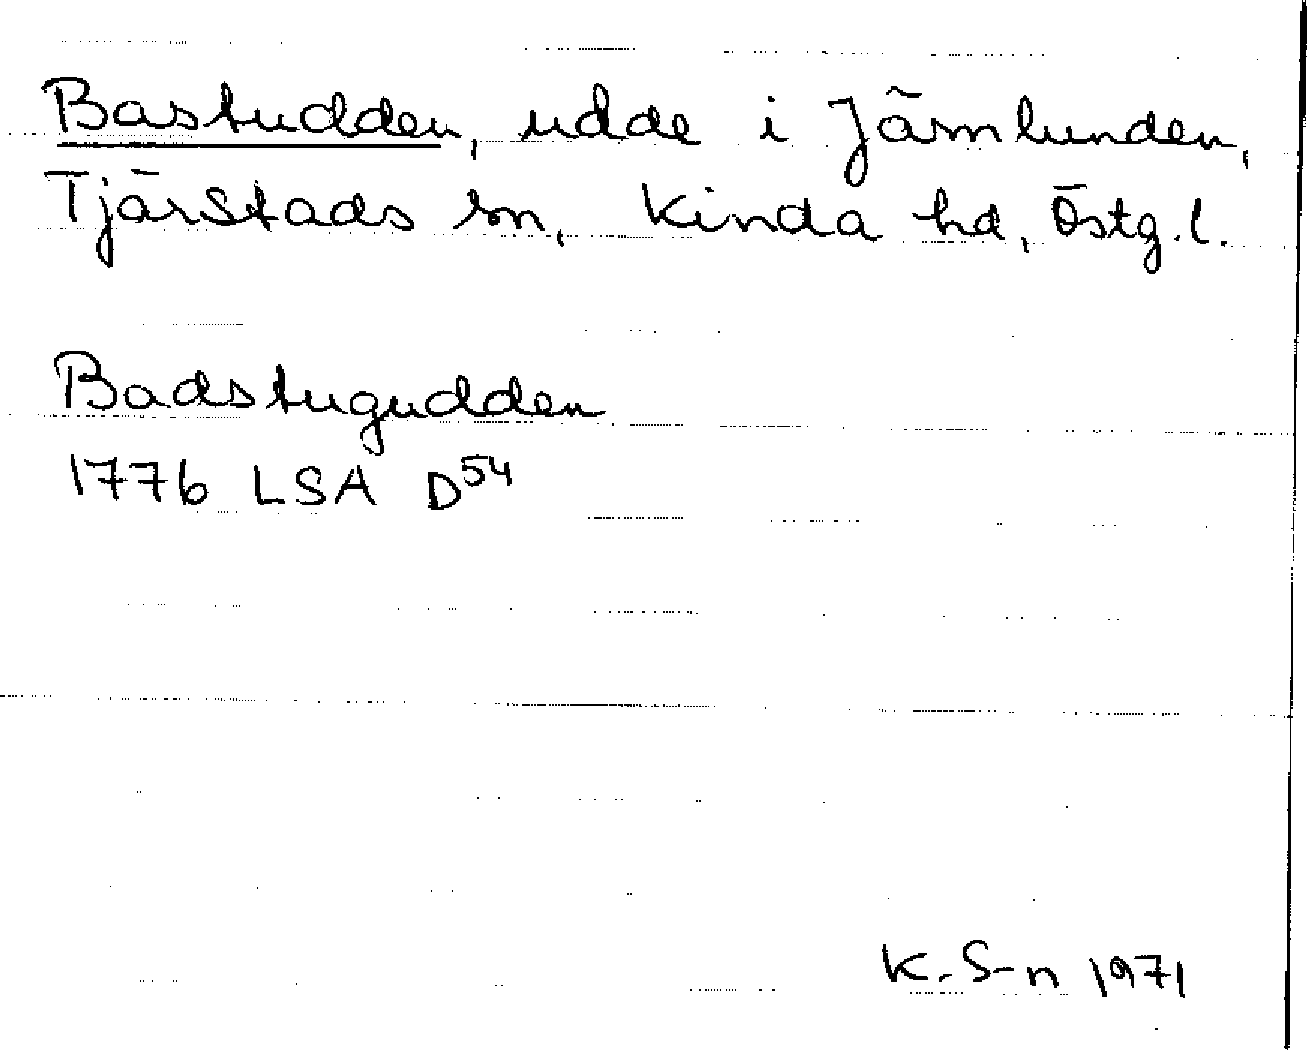 Bastudden, udde i Järnlunden,
Tjärstads sn, Kinda hd, Östg.l.
Badstugudden
1776 LSA D54
K. S-n 1971